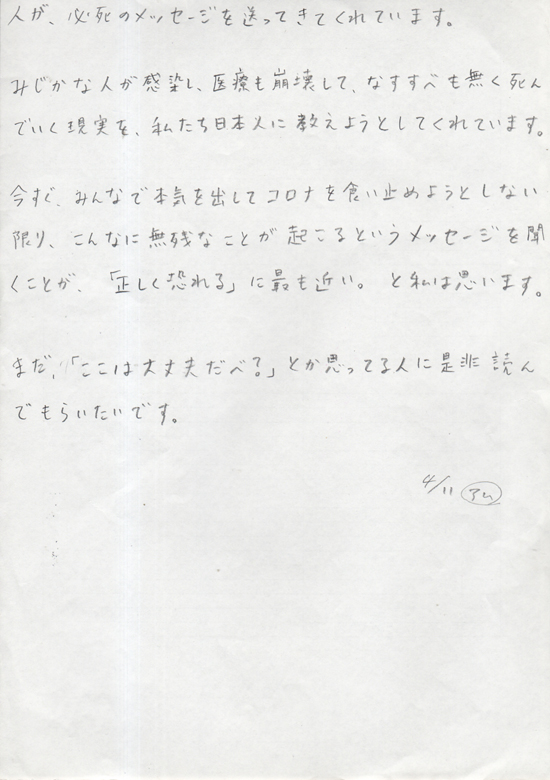 人が、必死のメッセージを送ってきてくれています。
みじかな人が感染し、医療も崩壊して、なすすべも無く死ん
でいく現実を、私たち日本人に教えようとしてくれています。
今すぐ、みんなで本気を出してコロナを食い止めようとしない
限り、こんなに無残なことが起こるというメッセージを聞
くことが、「正しく恐れる」に最も近い。と私は思います。
まだ、「ここは大丈夫だべ？」とか思ってる人に是非読ん
でもらいたいです。
4/11